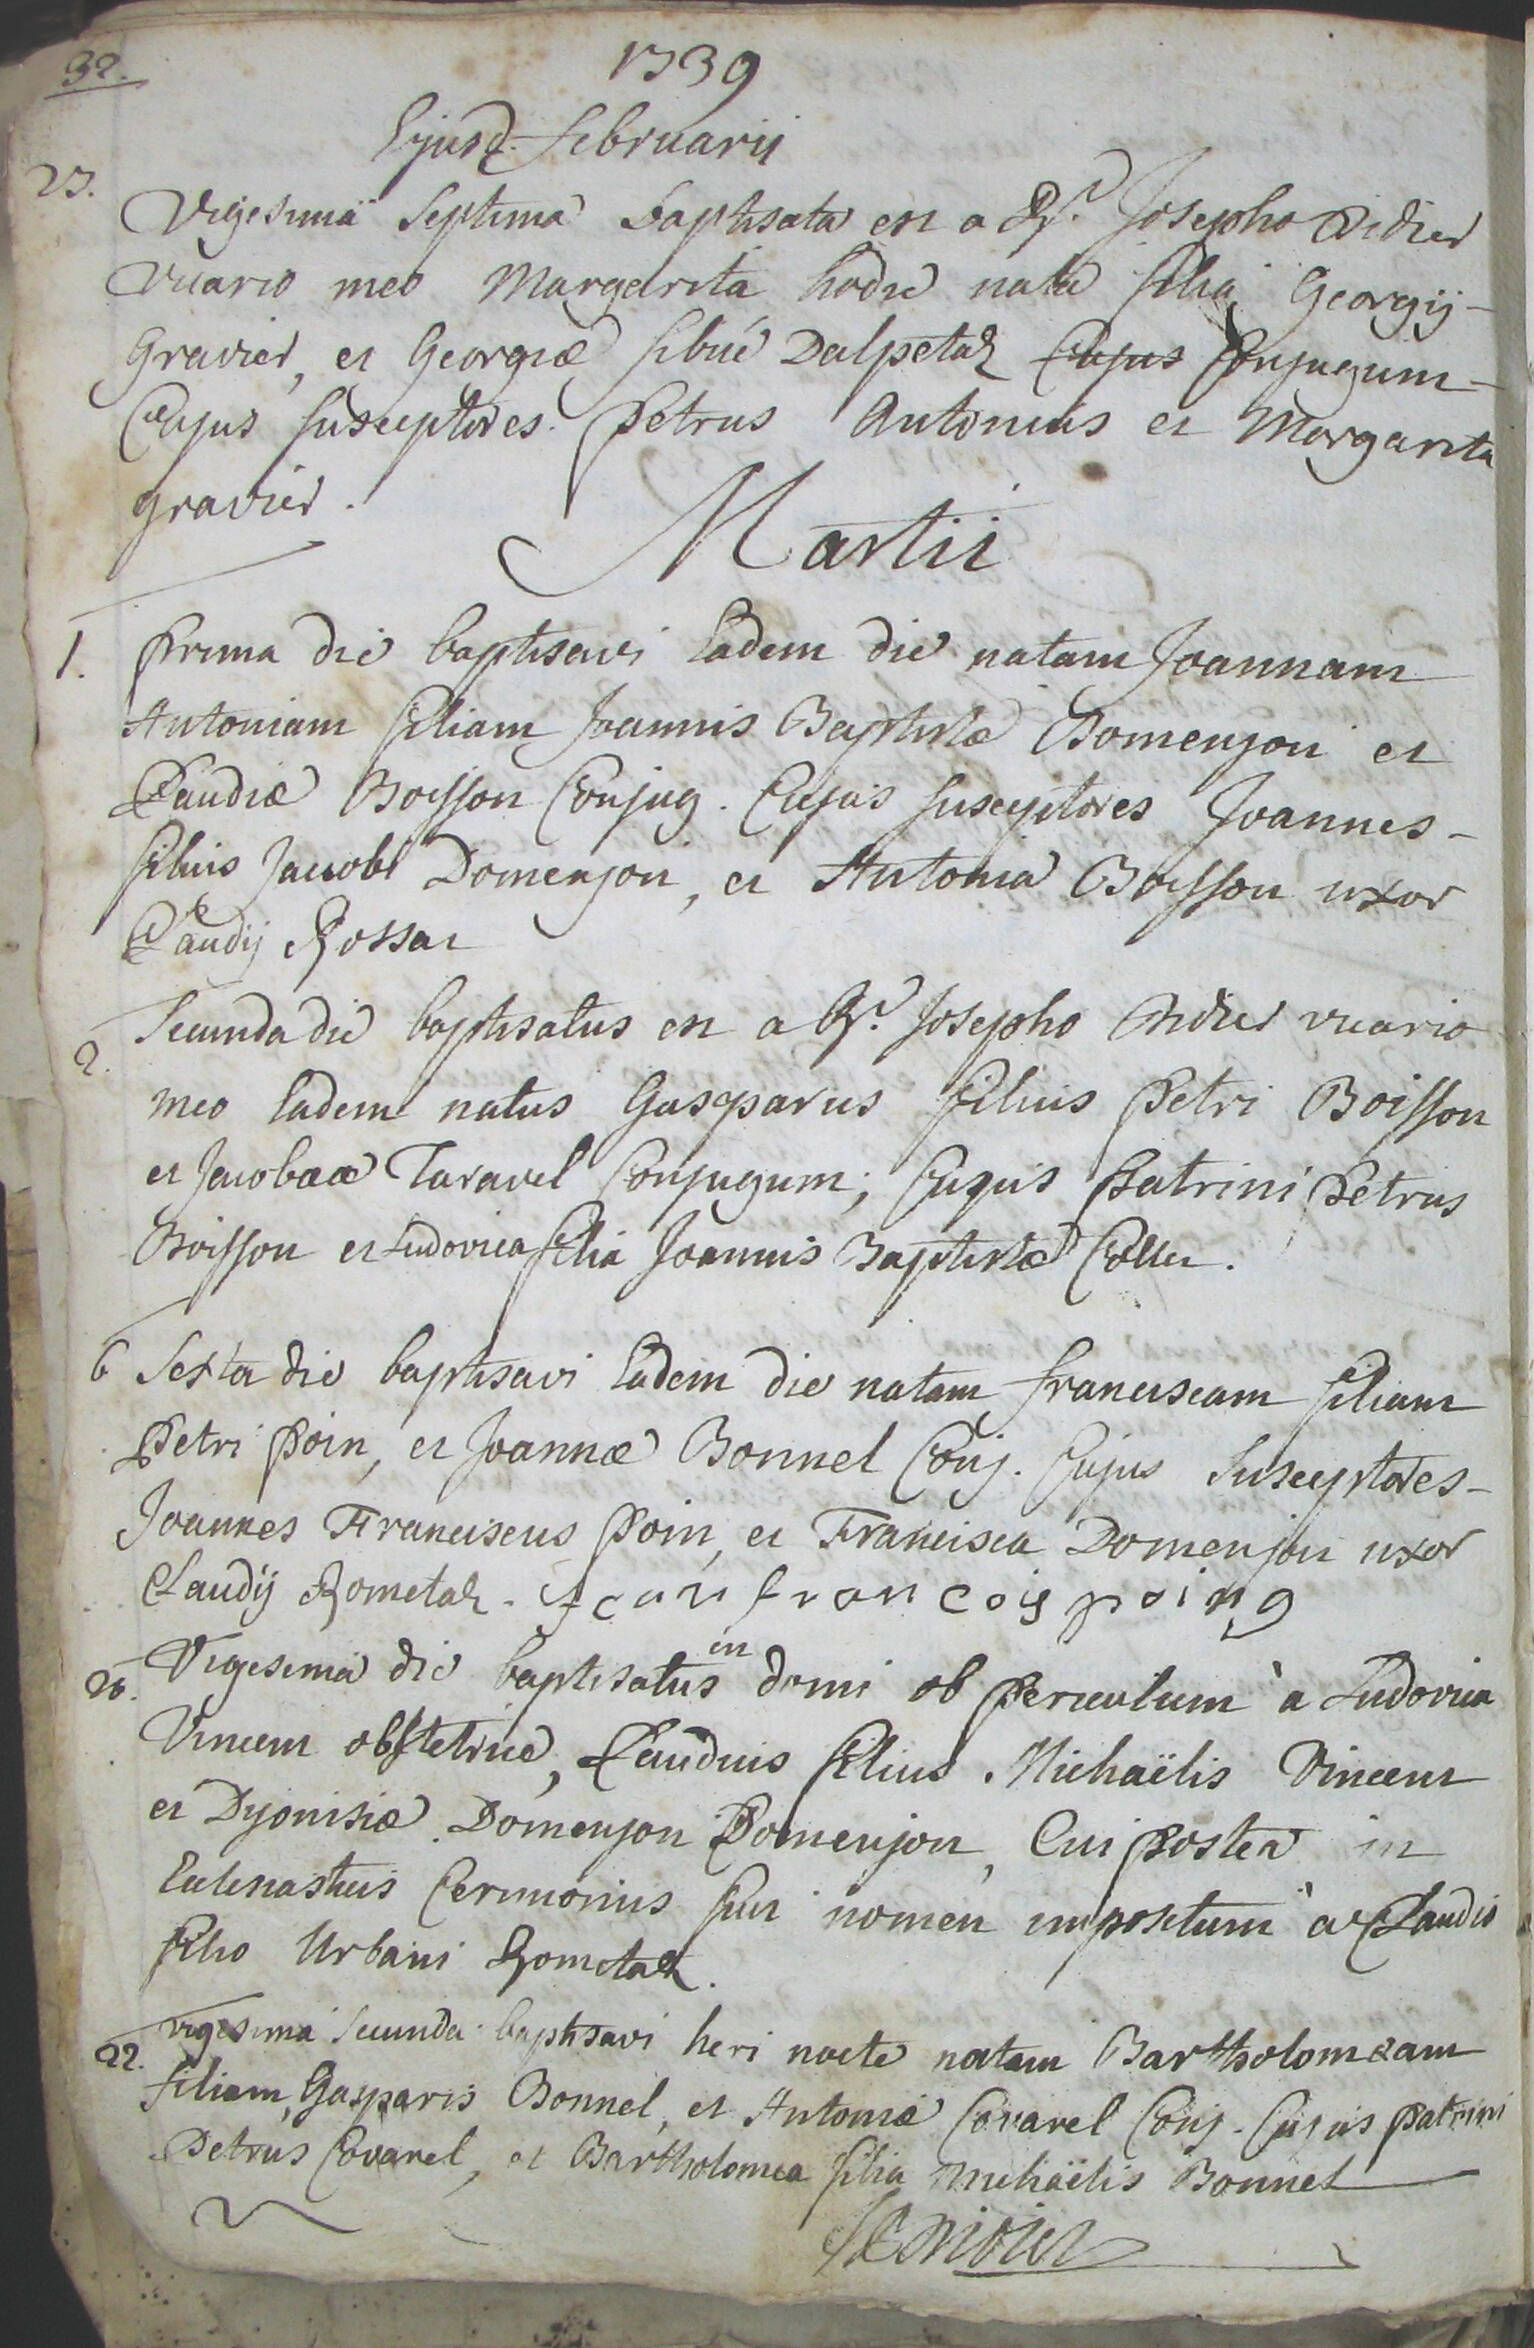 32.
1739
Ejusd. februarij
27.
Vigesima septima baptisata est a Rdo. Josepho Didier
vicario meo Margarita hodie nata filia Georgij
Gravier, et Georgiæ Sibué Dalpetaz Cujus Conjugum
Cujus susceptores Petrus Antonius et Margarita
gravier.
Martii
1. Prima die baptisavi Eadem die natam Joannam
Antoniam filiam Joannis Baptistæ Domenjon et
Claudiæ Boisson Conjug. Cujus susceptores Joannes
filius Jacobi Domenjon, et Antonia Boisson uxor
Claudij Rossat
2. Secunda die baptisatus est a Rdo. Josepho Didier vicario
meo Eadem natus Gasparus filius Petri Boisson
et Jacobæa Taravel Conjugum; Cujus Patrini Petrus
Boisson et Ludovica filia Joannis Baptistæ Collet.
6 Sexta die baptisavi Eadem die natam franciscam filiam
Petri Poin, et Joannæ Bonnel Conj. Cujus susceptores
Joannes Franciscus Poin, et Francisca Domenjon uxor
Claudij Rometaz. jean francois poing
20. Vigesima die baptisatus in domi ob Periculum à Ludovica
Vincent obstetrice, Claudius filius Michaëlis Vincent
et Dyonisiæ Domenjon Domenjon, Cui Postea in
Eclesiasticis Cerimoniis fuit nomen impositum à Claudio
filio Urbani Rometaz.
22. vigesima secunda baptisavi heri nocte natam Bartholomeam
filiam Gasparis Bonnel, et Antonia Covarel Conj. Cujus patrini
Petrus Covarel, et Bartholomea filia Michaëlis Bonnel